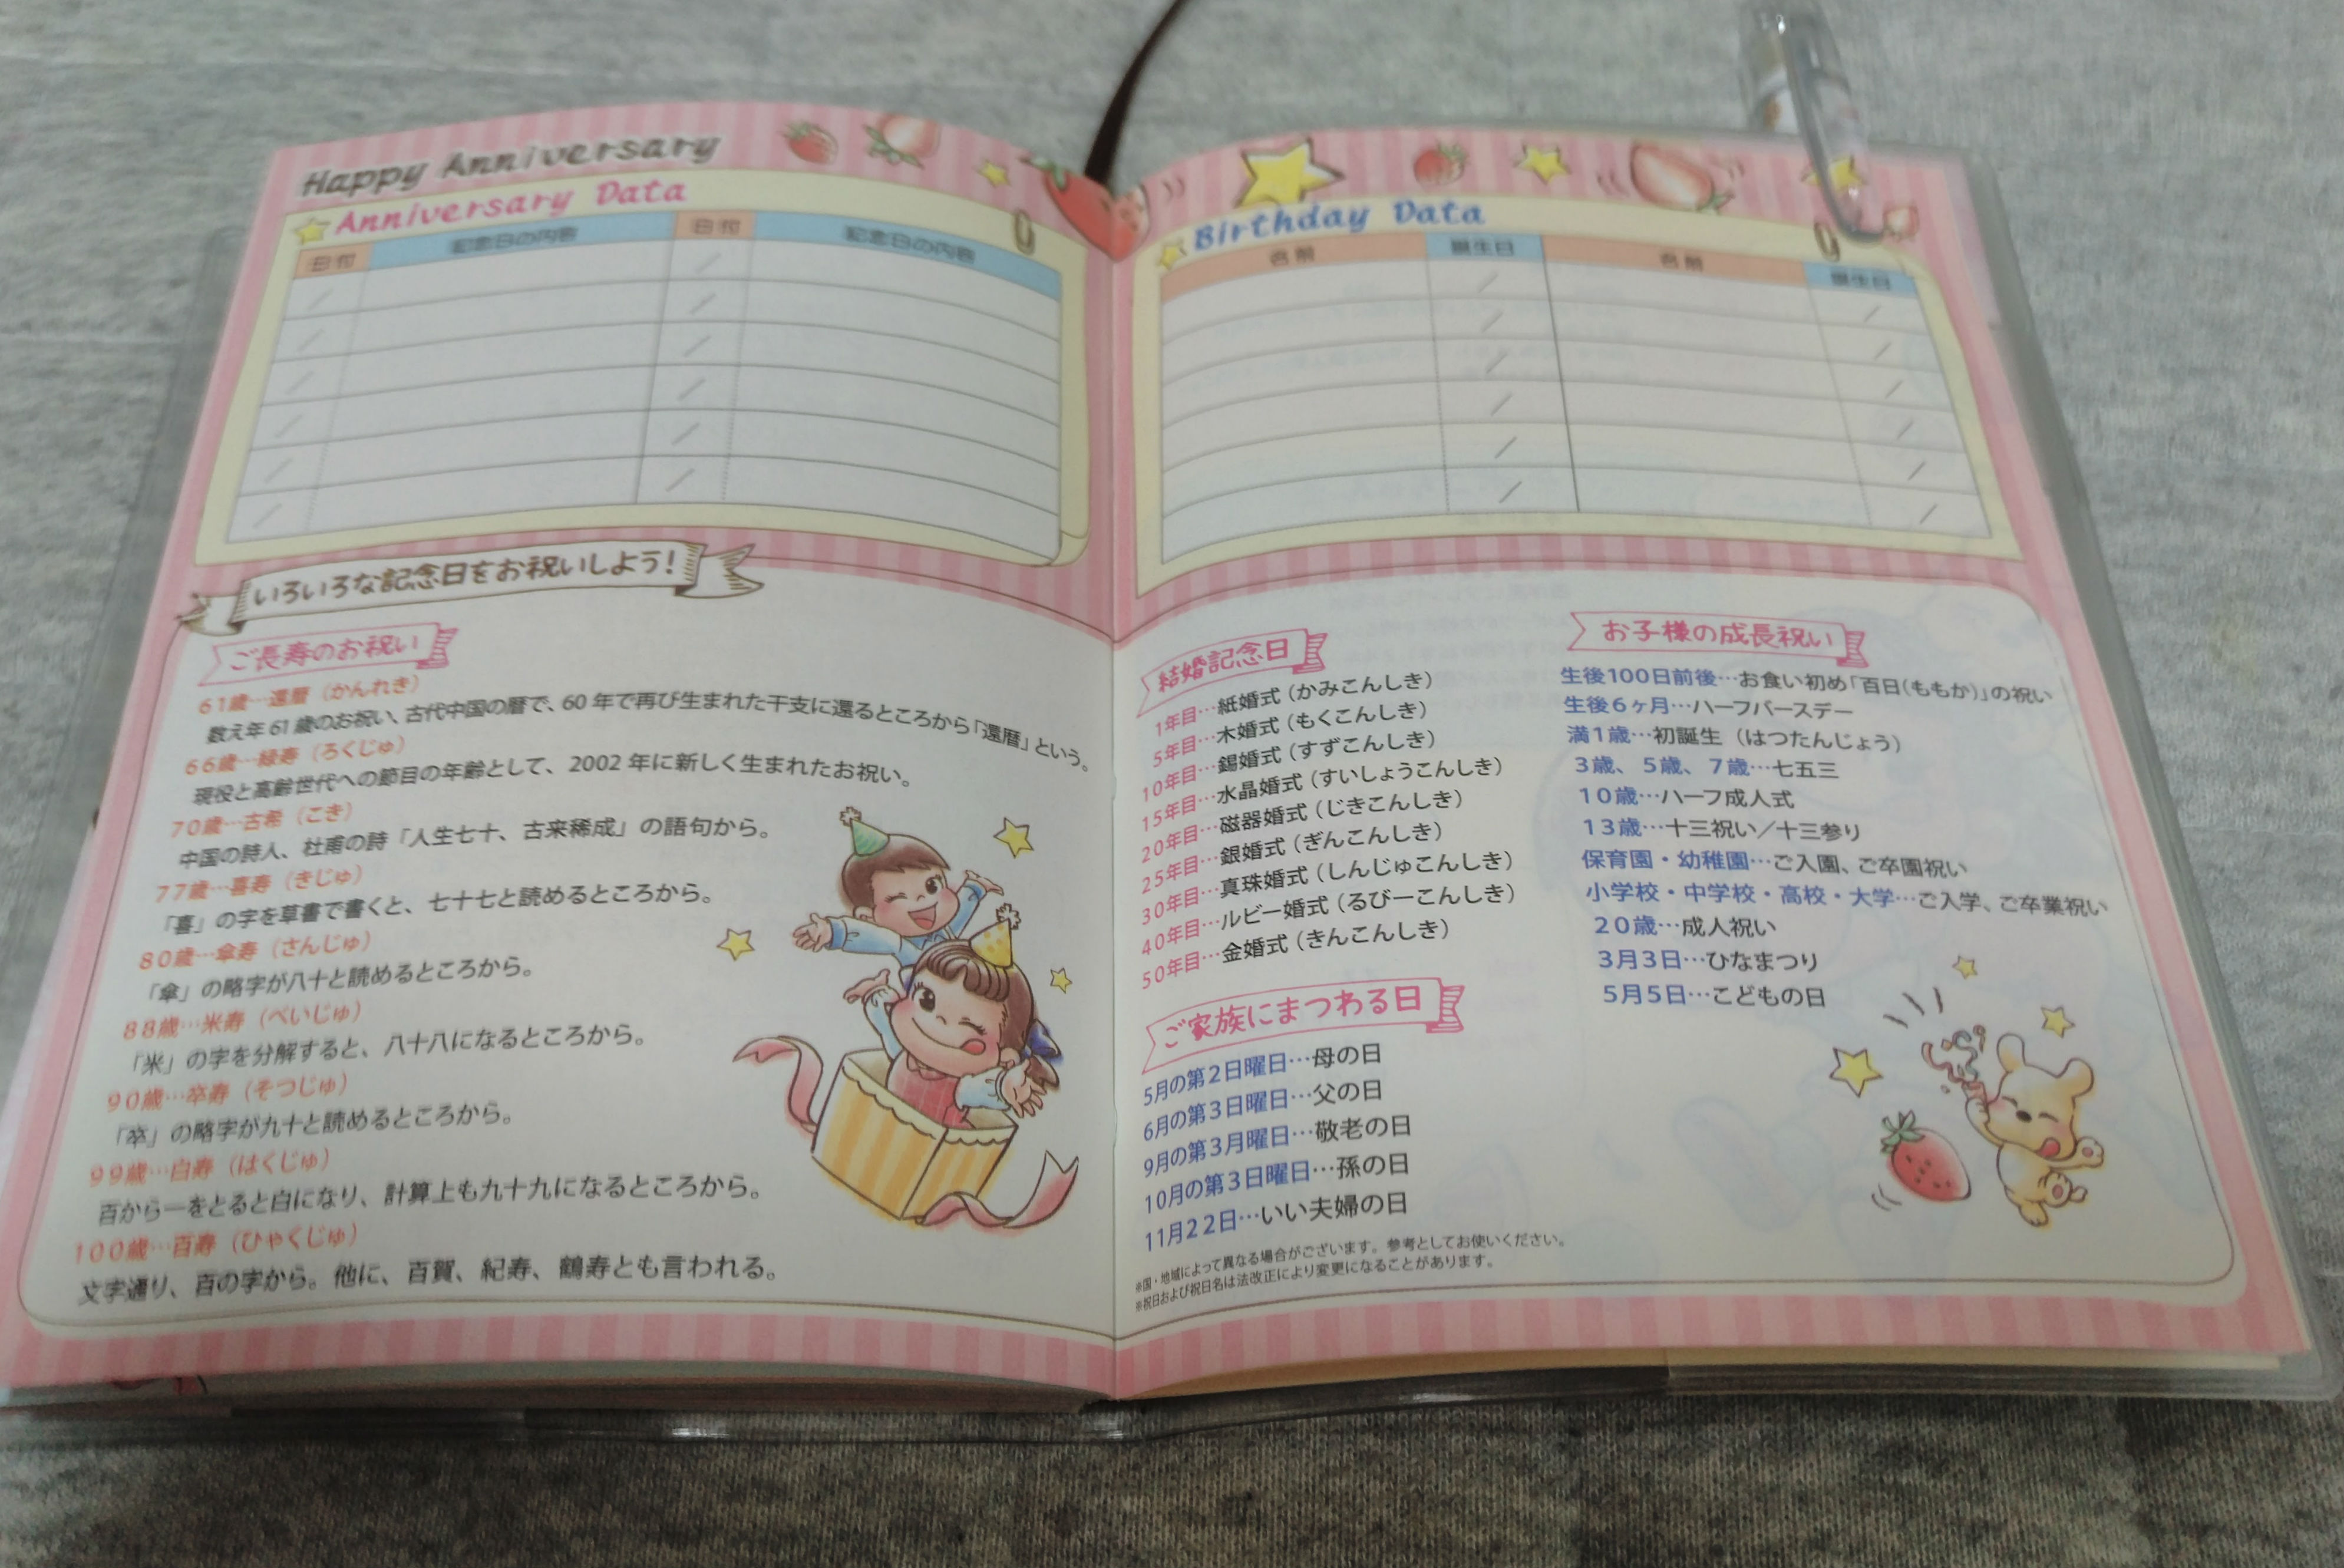 Happy Anniversary
Anniversary Data
日付 記念日の内容 日付 記念日の内容
いろいろな記念日をお祝いしよう!
ご長寿のお祝い
61歳…還暦（かんれき）
数え年61歳のお祝い、古代中国の暦で、60年で再び生まれた干支に還るところから「還暦」という。
66歳…緑寿（ろくじゅ）
現役と高齢世代への節目の年齢として、2002年に新しく生まれたお祝い。
70歳…古希（こき）
中国の詩人、杜甫の詩「人生七十、古来稀成」の語句から。
77歳…喜寿（きじゅ）
「喜」の字を草書で書くと、七十七と読めるところから。
80歳…傘寿（さんじゅ）
「傘」の略字が八十と読めるところから。
88歳…米寿（べいじゅ）
「米」の字を分解すると、八十八になるところから。
90歳…卒寿（そつじゅ）
「卒」の略字が九十と読めるところから。
99歳…白寿（はくじゅ）
百から一をとると白になり、計算上も九十九になるところから。
100歳…百寿（ひゃくじゅ）
文字通り、百の字から。他に、百賀、紀寿、鶴寿とも言われる。
Birthday Data
名前 誕生日 名前 誕生日
結婚記念日
1年目…紙婚式（かみこんしき）
5年目…木婚式（もくこんしき）
10年目…錫婚式（すずこんしき）
15年目…水晶婚式（すいしょうこんしき）
20年目…磁器婚式（じきこんしき）
25年目…銀婚式（ぎんこんしき）
30年目…真珠婚式（しんじゅこんしき）
40年目…ルビー婚式（るびーこんしき）
50年目…金婚式（きんこんしき）
ご家族にまつわる日
5月の第2日曜日…母の日
6月の第3日曜日…父の日
9月の第3月曜日…敬老の日
10月の第3日曜日…孫の日
11月22日…いい夫婦の日
※国・地域によって異なる場合がございます。参考としてお使いください。
※祝日および祝日名は法改正により変更になることがあります。
お子様の成長祝い
生後100日前後…お食い初め「百日(ももか)」の祝い
生後6ヶ月…ハーフバースデー
満1歳…初誕生（はつたんじょう）
3歳、5歳、7歳…七五三
10歳…ハーフ成人式
13歳…十三祝い／十三参り
保育園・幼稚園…ご入園、ご卒園祝い
小学校・中学校・高校・大学…ご入学、ご卒業祝い
20歳…成人祝い
3月3日…ひなまつり
5月5日…こどもの日